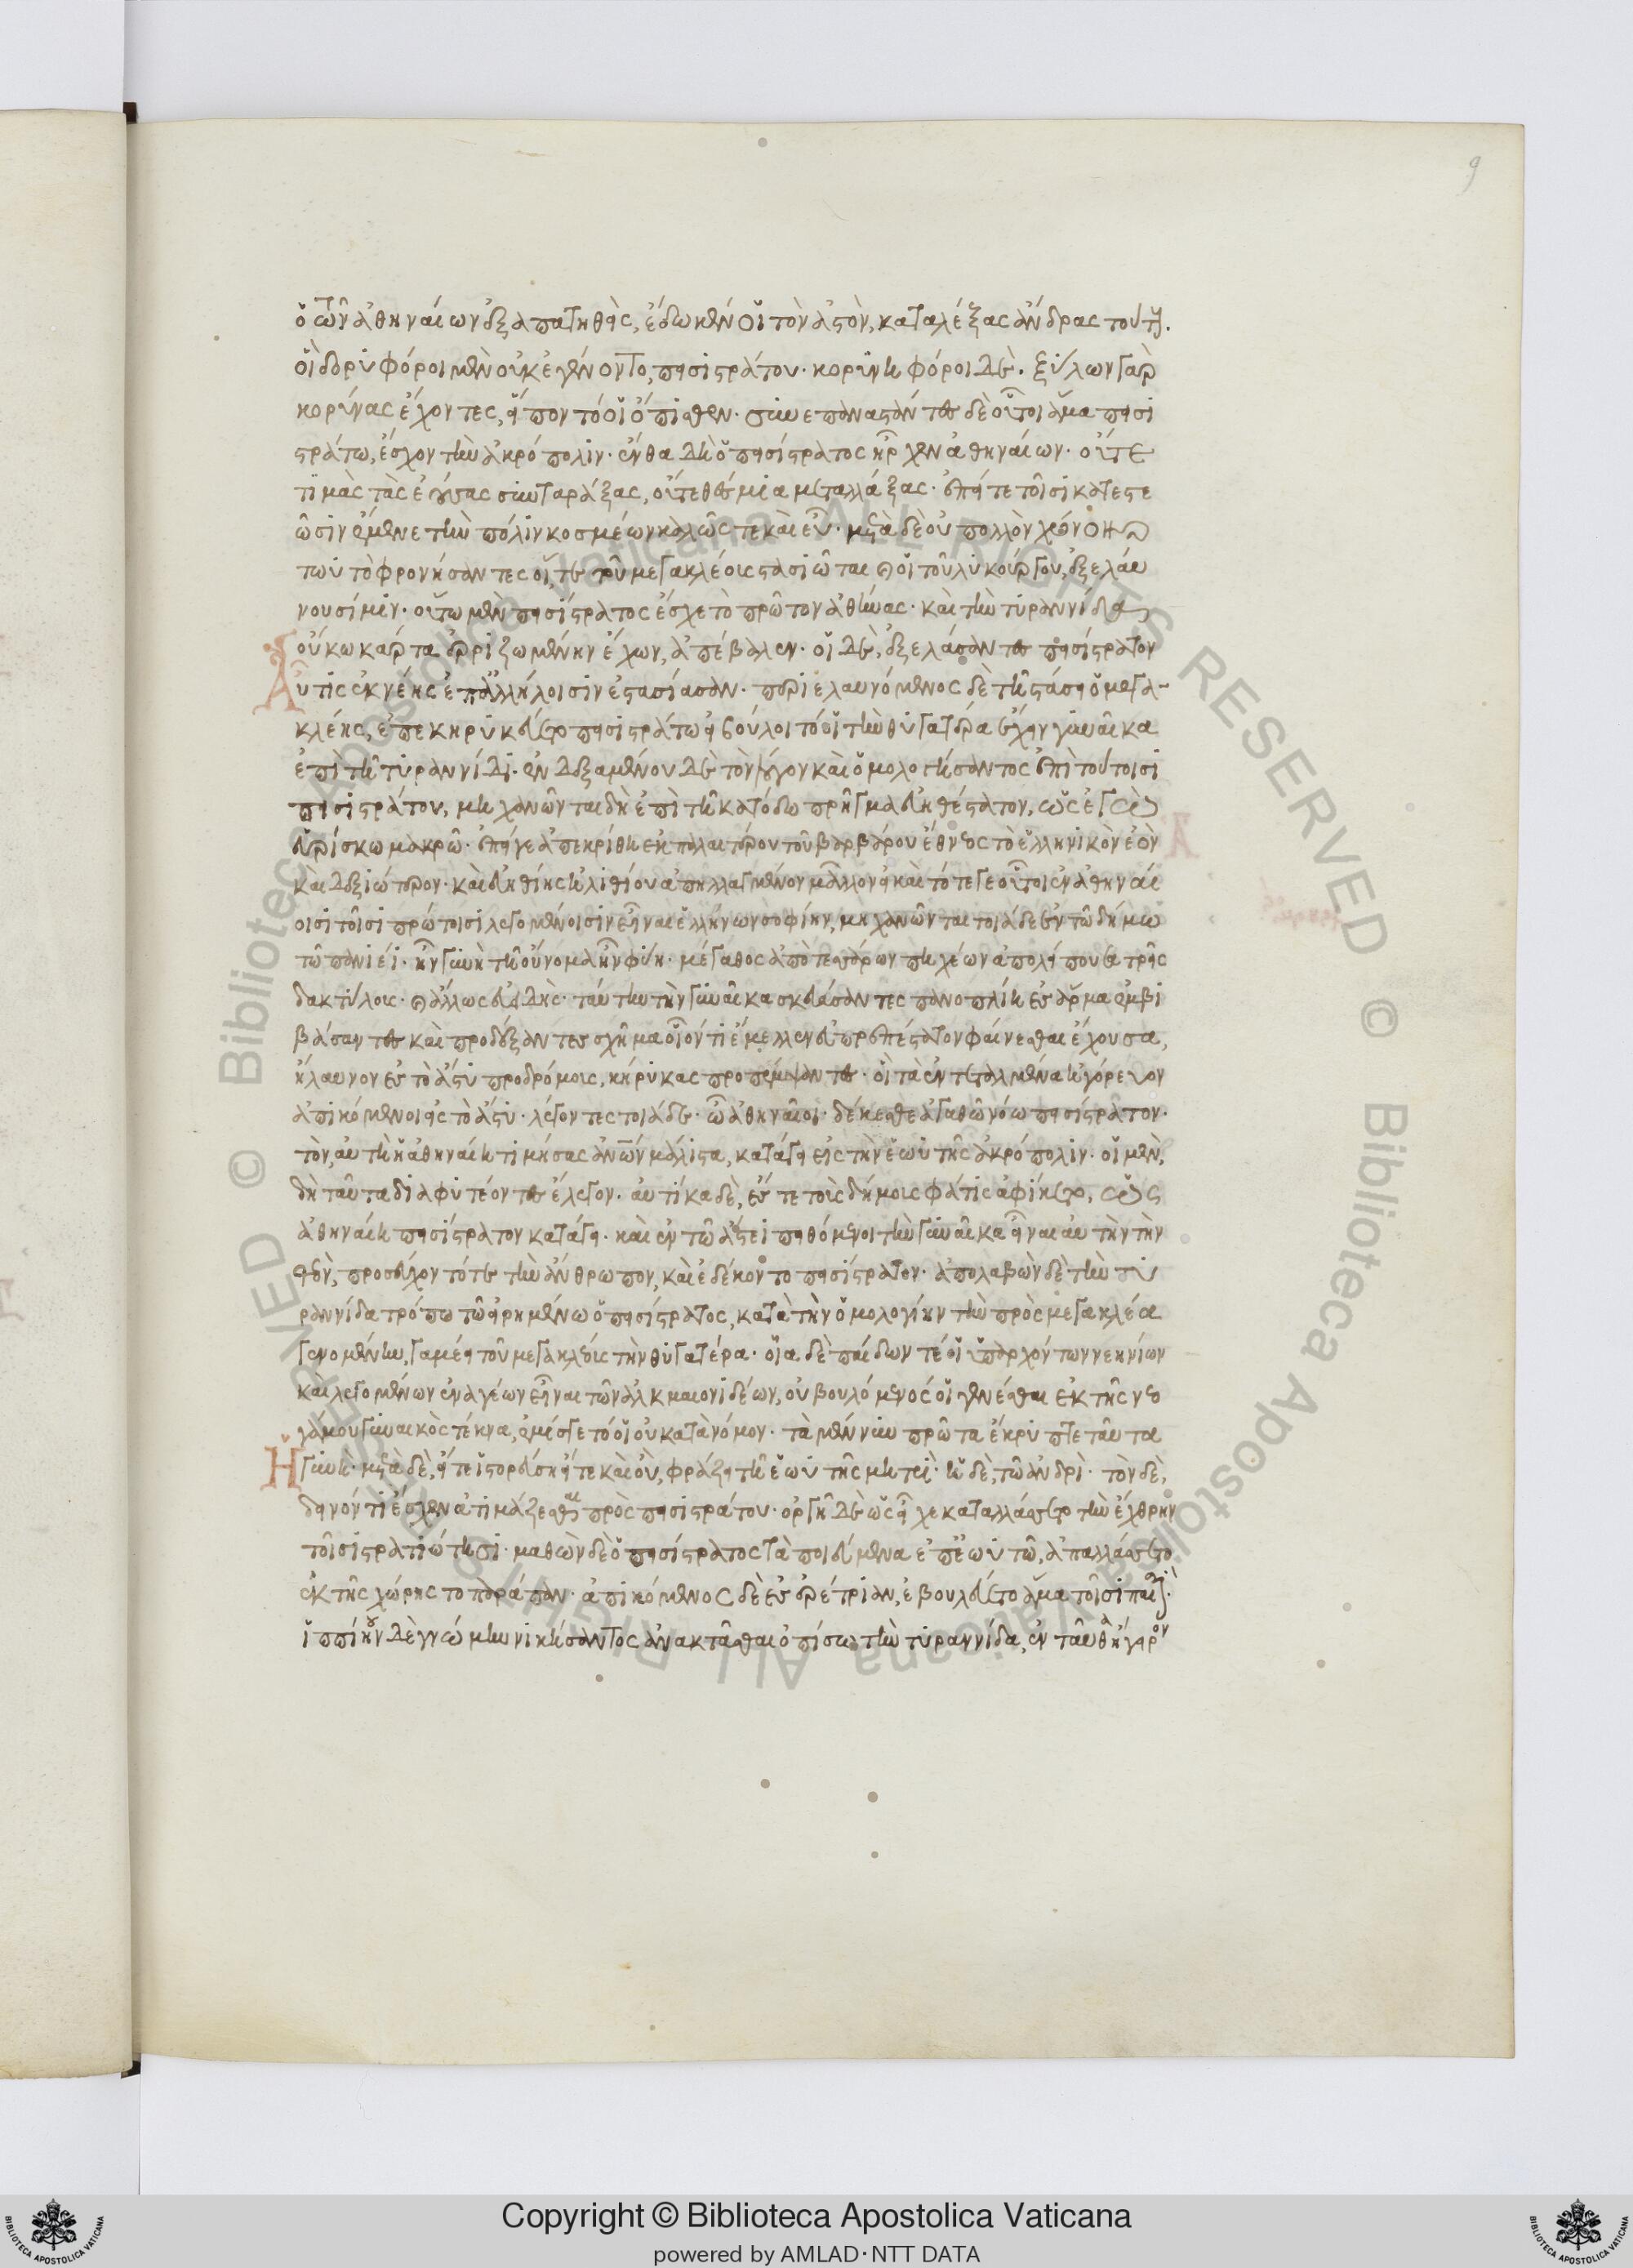 9
ὁ τῶν ἀθηναίων ἐξαπατηθεὶς, ἔδωκέν οἱ τῶν ἀστῶν, καταλέξας ἄνδρας τούτους.
οἳ δορυφόροι μὲν οὐκ ἐγένοντο, πεισιστράτου· κορυνηφόροι δέ. ξύλων γὰρ
κορύνας ἔχοντες, εἵποντό οἱ ὄπισθεν· συνεπαναστάντες δὲ οὗτοι ἅμα πεισι
στράτω, ἔσχον τὴν ἀκρόπολιν· ἔνθα δὴ ὁ πεισίστρατος ἦρχεν ἀθηναίων· οὔτε
τιμὰς τὰς ἐούσας συνταράξας, οὔτε θέσμια μεταλλάξας· ἐπί τε τοῖσι κατεστε
ῶσιν ἔνεμε τὴν πόλιν κοσμέων καλῶς τε καὶ εὖ· μετὰ δὲ οὐ πολλὸν χρόνον
τωυτὸ φρονήσαντες οἵ τε τοῦ μεγακλέος στασιῶται καὶ οἱ τοῦ λυκούργου, ἐξελαύ
νουσί μιν· οὕτω μὲν πεισίστρατος ἔσχε τὸ πρῶτον ἀθήνας· καὶ τὴν τυραννίδα
οὔκω κάρτα ἐρριζωμένην ἔχων, ἀπέβαλεν· οἱ δὲ, ἐξελάσαντες πεισίστρατον
Αὖτις ἐκ νέης ἐπ' ἀλλήλοισιν ἐστασίασαν· περιελαυνόμενος δὲ τῇ στάσει ὁ μεγα-
κλέης, ἐπεκηρυκεύετο πεισιστράτω εἰ βούλοιτό οἱ τὴν θυγατέρα ἔχειν γυναῖκα
ἐπὶ τῇ τυραννίδι· ἐνδεξαμένου δὲ τὸν λόγον καὶ ὁμολογήσαντος ἐπὶ τούτοισι
πεισιστράτου, μηχανῶνται δὴ ἐπὶ τῇ κατόδω πρῆγμα εὐηθέστατον, ὡς ἐγὼ
εὑρίσκω μακρῶ· ἐπεί γε ἀπεκρίθη ἐκ παλαιτέρου τοῦ βαρβάρου ἔθνεος τὸ ἑλληνικὸν ἐὸν
καὶ δεξιώτερον· καὶ εὐηθίης ἠλιθίου ἀπηλλαγμένον μᾶλλον εἰ καὶ τότε γε οὗτοι ἐν ἀθηναί
οισι τοῖσι πρώτοισι λεγομένοισιν εἶναι ἑλλήνων σοφίην, μηχανῶνται τοιάδε ἐν τῶ δήμω
τῶ πανιέϊ· ἦν γυνὴ τῇ οὔνομα ἦν φύη· μέγαθος ἀπὸ τεσσέρων πηχέων ἀπολείπουσα τρεῖς
δακτύλους· καὶ ἄλλως εὐειδής· ταύτην τὴν γυναῖκα σκευάσαντες πανοπλίη ἐς ἅρμα ἐμβι
βάσαντες καὶ προδέξαντες σχῆμα οἷόν τι ἔμελλεν εὐπρεπέστατον φαίνεσθαι ἔχουσα,
ἤλαυνον ἐς τὸ ἄστυ προδρόμους, κήρυκας προπέμψαντες· οἳ τὰ ἐντεταλμένα ἠγόρευον
ἀπικόμενοι εἰς τὸ ἄστυ· λέγοντες τοιάδε· ὦ ἀθηναῖοι· δέκεσθε ἀγαθῶ νόω πεισίστρατον·
τὸν, αὐτὴ ἡ ἀθηναίη τιμήσασα ἀνθρώπων μάλιστα, κατάγει εἰς τὴν ἑωυτῆς ἀκρόπολιν· οἱ μὲν,
δὴ ταῦτα διαφοιτέοντες ἔλεγον· αὐτίκα δὲ, ἔς τε τοὺς δήμους φάτις ἀφίκετο, ὡς
ἀθηναίη πεισίστρατον κατάγει· καὶ ἐν τῶ ἄστεϊ πειθόμενοι τὴν γυναῖκα εἶναι αὐτὴν τὴν
θεὸν, προσεύχοντό τε τὴν ἄνθρωπον, καὶ ἐδέκοντο πεισίστρατον· ἀπολαβὼν δὲ τὴν τυ
ραννίδα τρόπω τῶ εἰρημένω ὁ πεισίστρατος, κατὰ τὴν ὁμολογίην τὴν πρὸς μεγακλέα
γενομένην, γαμέει τοῦ μεγακλέους τὴν θυγατέρα· οἷα δὲ παίδων τέ οἱ ὑπαρχόντων νεηνίων
καὶ λεγομένων ἐναγέων εἶναι τῶν ἀλκμαιονιδέων, οὐ βουλόμενός οἱ γενέσθαι ἐκ τῆς νεο
γάμου γυναικὸς τέκνα, ἐμίσγετό οἱ οὐ κατὰ νόμον· τὰ μέν νυν πρῶτα ἔκρυπτε ταῦτα
Ἡ γυνή· μετὰ δὲ, εἴτε ἱστορεύσῃ εἴτε καὶ οὐ, φράζει τῇ ἑωυτῆς μητρί· ἡ δὲ, τῶ ἀνδρί· τὸν δὲ,
δεινόν τι ἔσχεν ἀτιμάζεσθαι πρὸς πεισιστράτου· ὀργῇ δὲ ὡς εἶχε καταλλάσσετο τὴν ἔχθρην
τοῖσι στρατιώτῃσι· μαθὼν δὲ ὁ πεισίστρατος τὰ ποιεύμενα ἐπ' ἑωυτῶ, ἀπαλλάσσετο
ἐκ τῆς χώρης τοπαράπαν· ἀπικόμενος δὲ ἐς ἐρέτριαν, ἐβουλεύετο ἅμα τοῖσι παισί·
ἱππίου δὲ γνώμην νικήσαντος ἀνακτᾶσθαι ὀπίσω τὴν τυραννίδα, ἐνταῦθα ἤγειρον
Copyright © Biblioteca Apostolica Vaticana
powered by AMLAD·NTT DATA